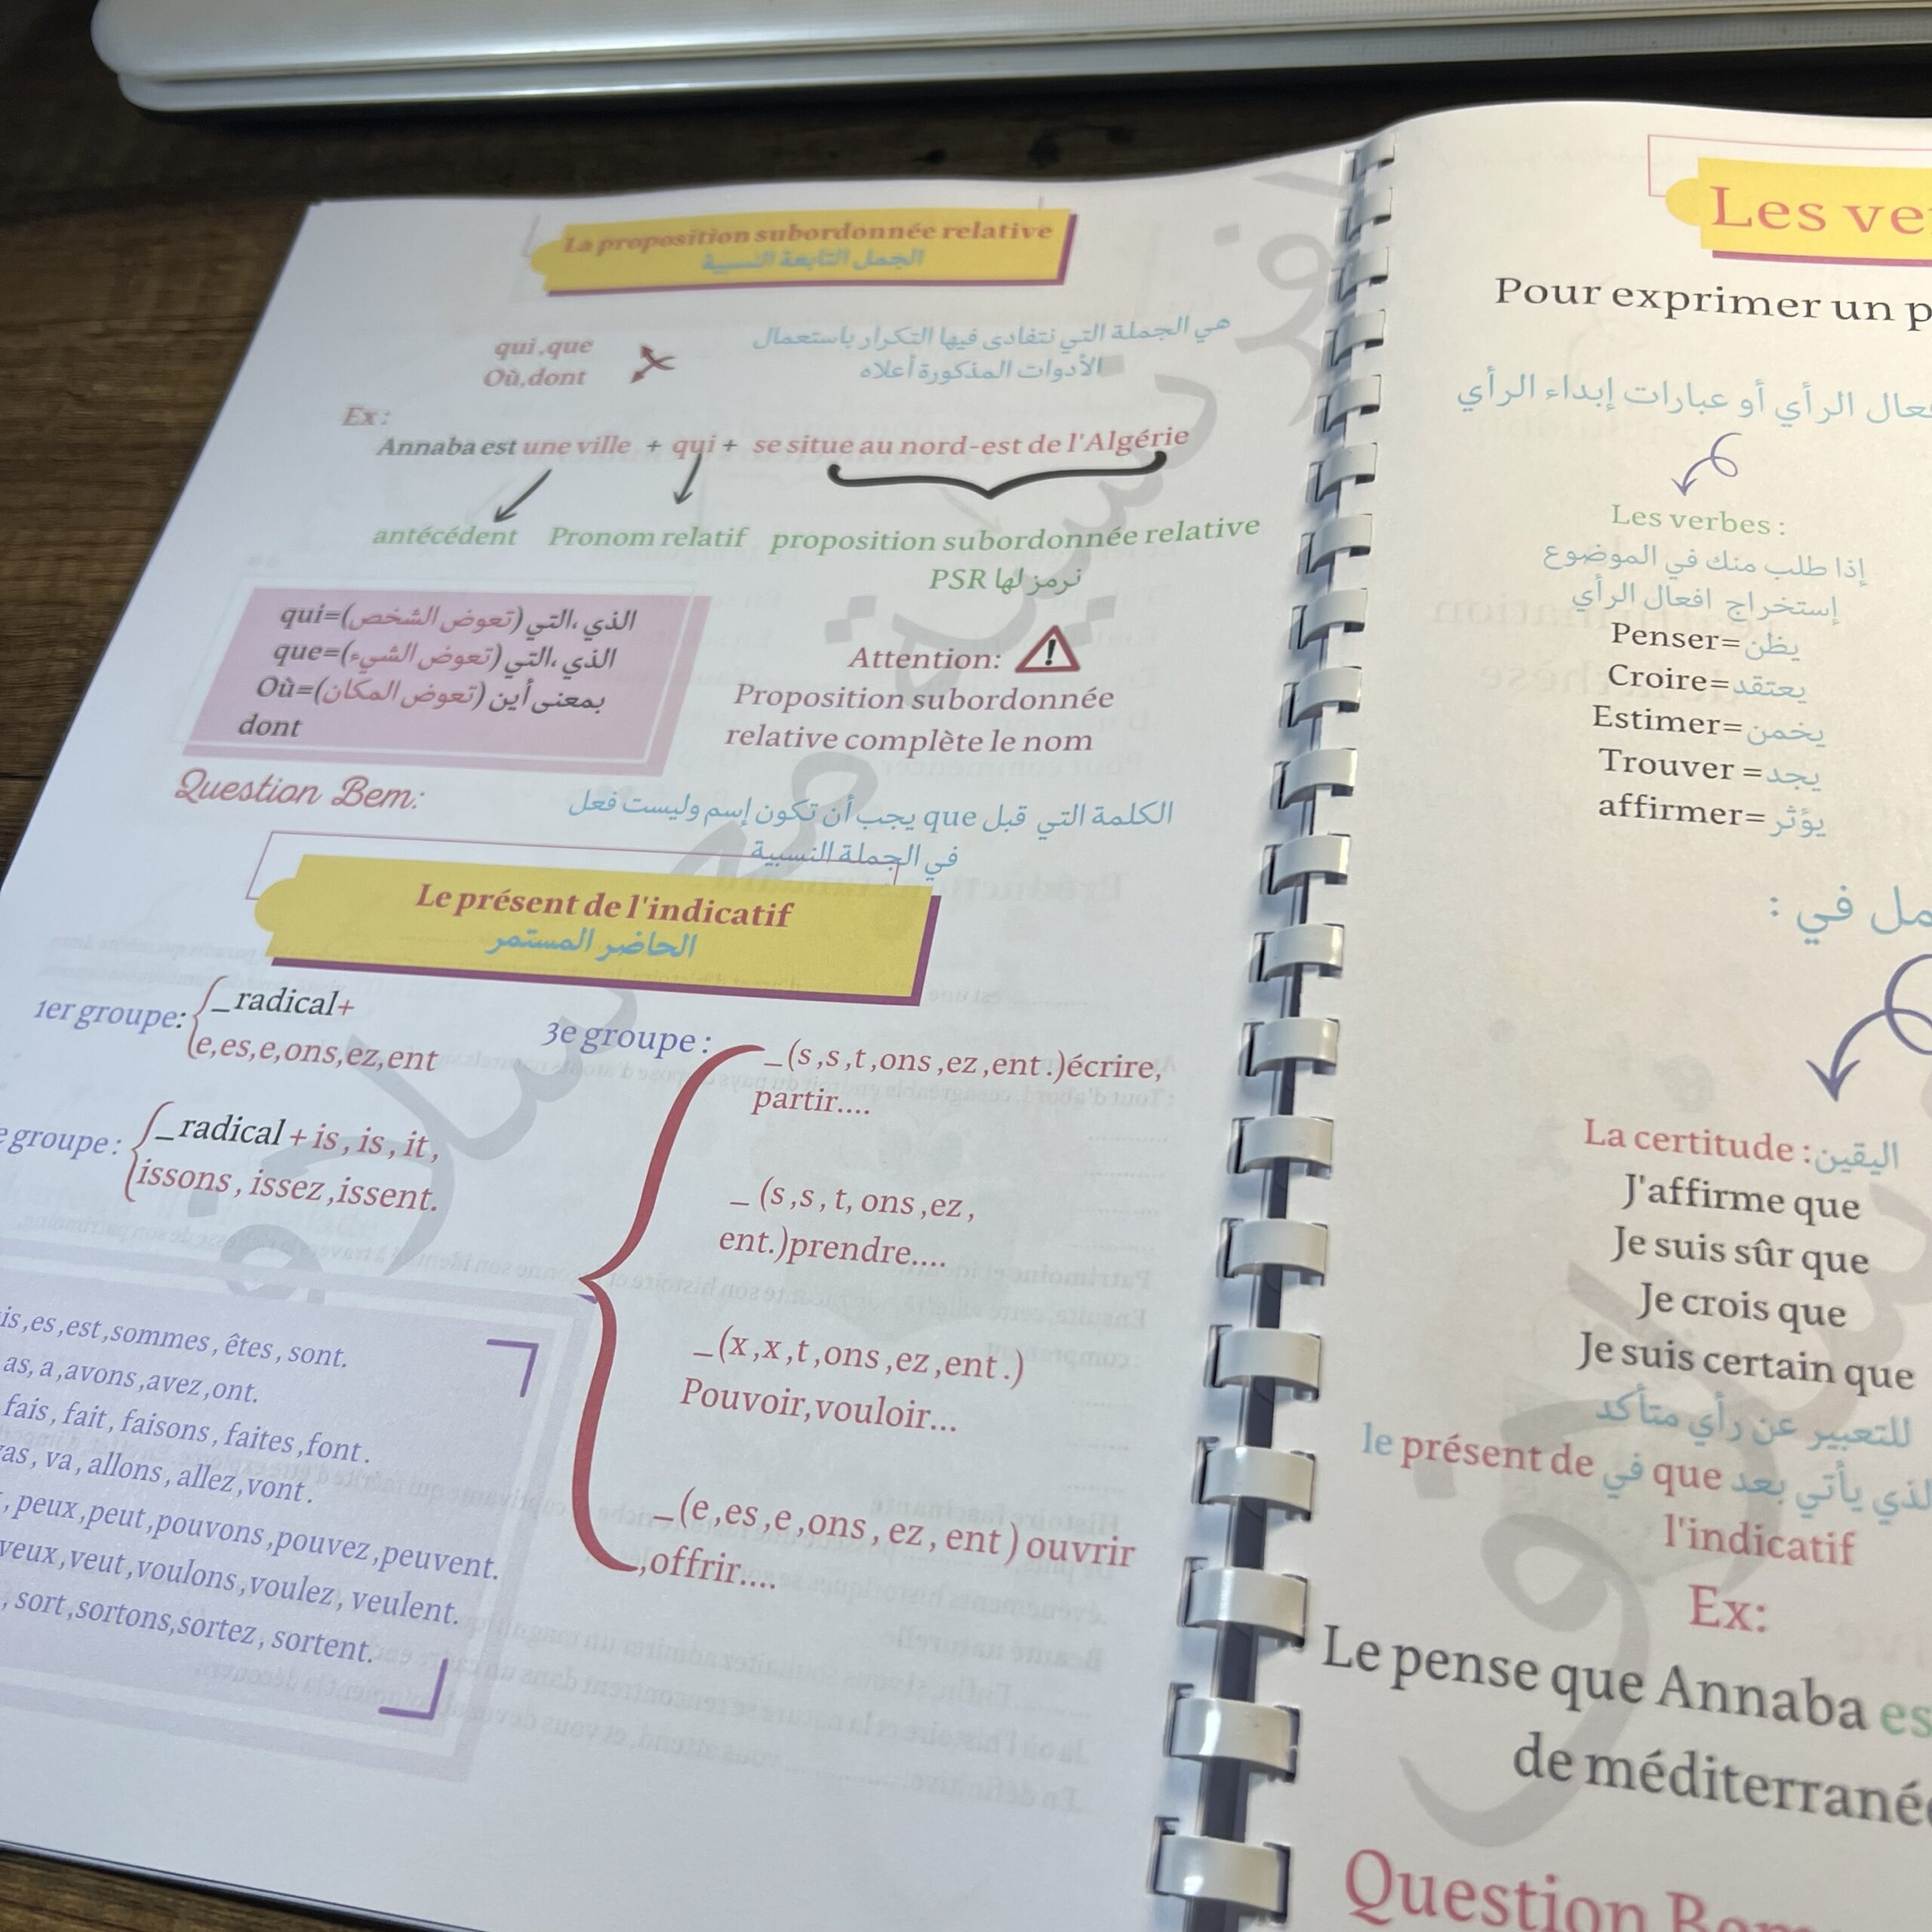 La proposition subordonnée relative
الجمل التابعة النسبية
qui.que
Où,dont
هي الجملة التي نتفادى فيها التكرار باستعمال
الأدوات المذكورة أعلاه
Ex:
Annaba est une ville + qui + se situe au nord-est de l'Algérie
antécédent Pronom relatif proposition subordonnée relative
نرمز لها PSR
qui=(تعوض الشخص) الذي ،التي
que=(تعوض الشيء) الذي ،التي
Où=(تعوض المكان) بمعنى أين
dont
Attention:
Proposition subordonnée
relative complète le nom
Question Bem:
الكلمة التي قبل que يجب أن تكون إسم وليست فعل
في الجملة النسبية
Le présent de l'indicatif
الحاضر المستمر
1er groupe:
_radical+
e,es,e,ons,ez,ent
groupe:
_radical + is, is, it,
issons, issez,issent.
3e groupe:
_(s,s,t,ons,ez,ent.)écrire,
partir....
_ (s,s, t, ons,ez,
ent.)prendre....
_(x,x,t,ons,ez,ent.)
Pouvoir,vouloir...
_(e,es,e,ons, ez, ent) ouvrir
,offrir....
is,es,est,sommes, êtes, sont.
as, a,avons,avez,ont.
fais, fait, faisons, faites,font.
as, va, allons, allez,vont.
, peux,peut,pouvons,pouvez,peuvent.
veux,veut,voulons,voulez, veulent.
, sort,sortons,sortez, sortent.
Les ve
Pour exprimer un p
عال الرأي أو عبارات إبداء الرأي
Les verbes :
إذا طلب منك في الموضوع
إستخراج افعال الرأي
Penser=يظن
Croire=يعتقد
Estimer=يخمن
Trouver =يجد
affirmer=يؤثر
مل في :
La certitude :اليقين
J'affirme que
Je suis sûr que
Je crois que
Je suis certain que
للتعبير عن رأي متأكد
لذي يأتي بعد que في le présent de
l'indicatif
Ex:
Le pense que Annaba es
de méditerrané
Question Bem